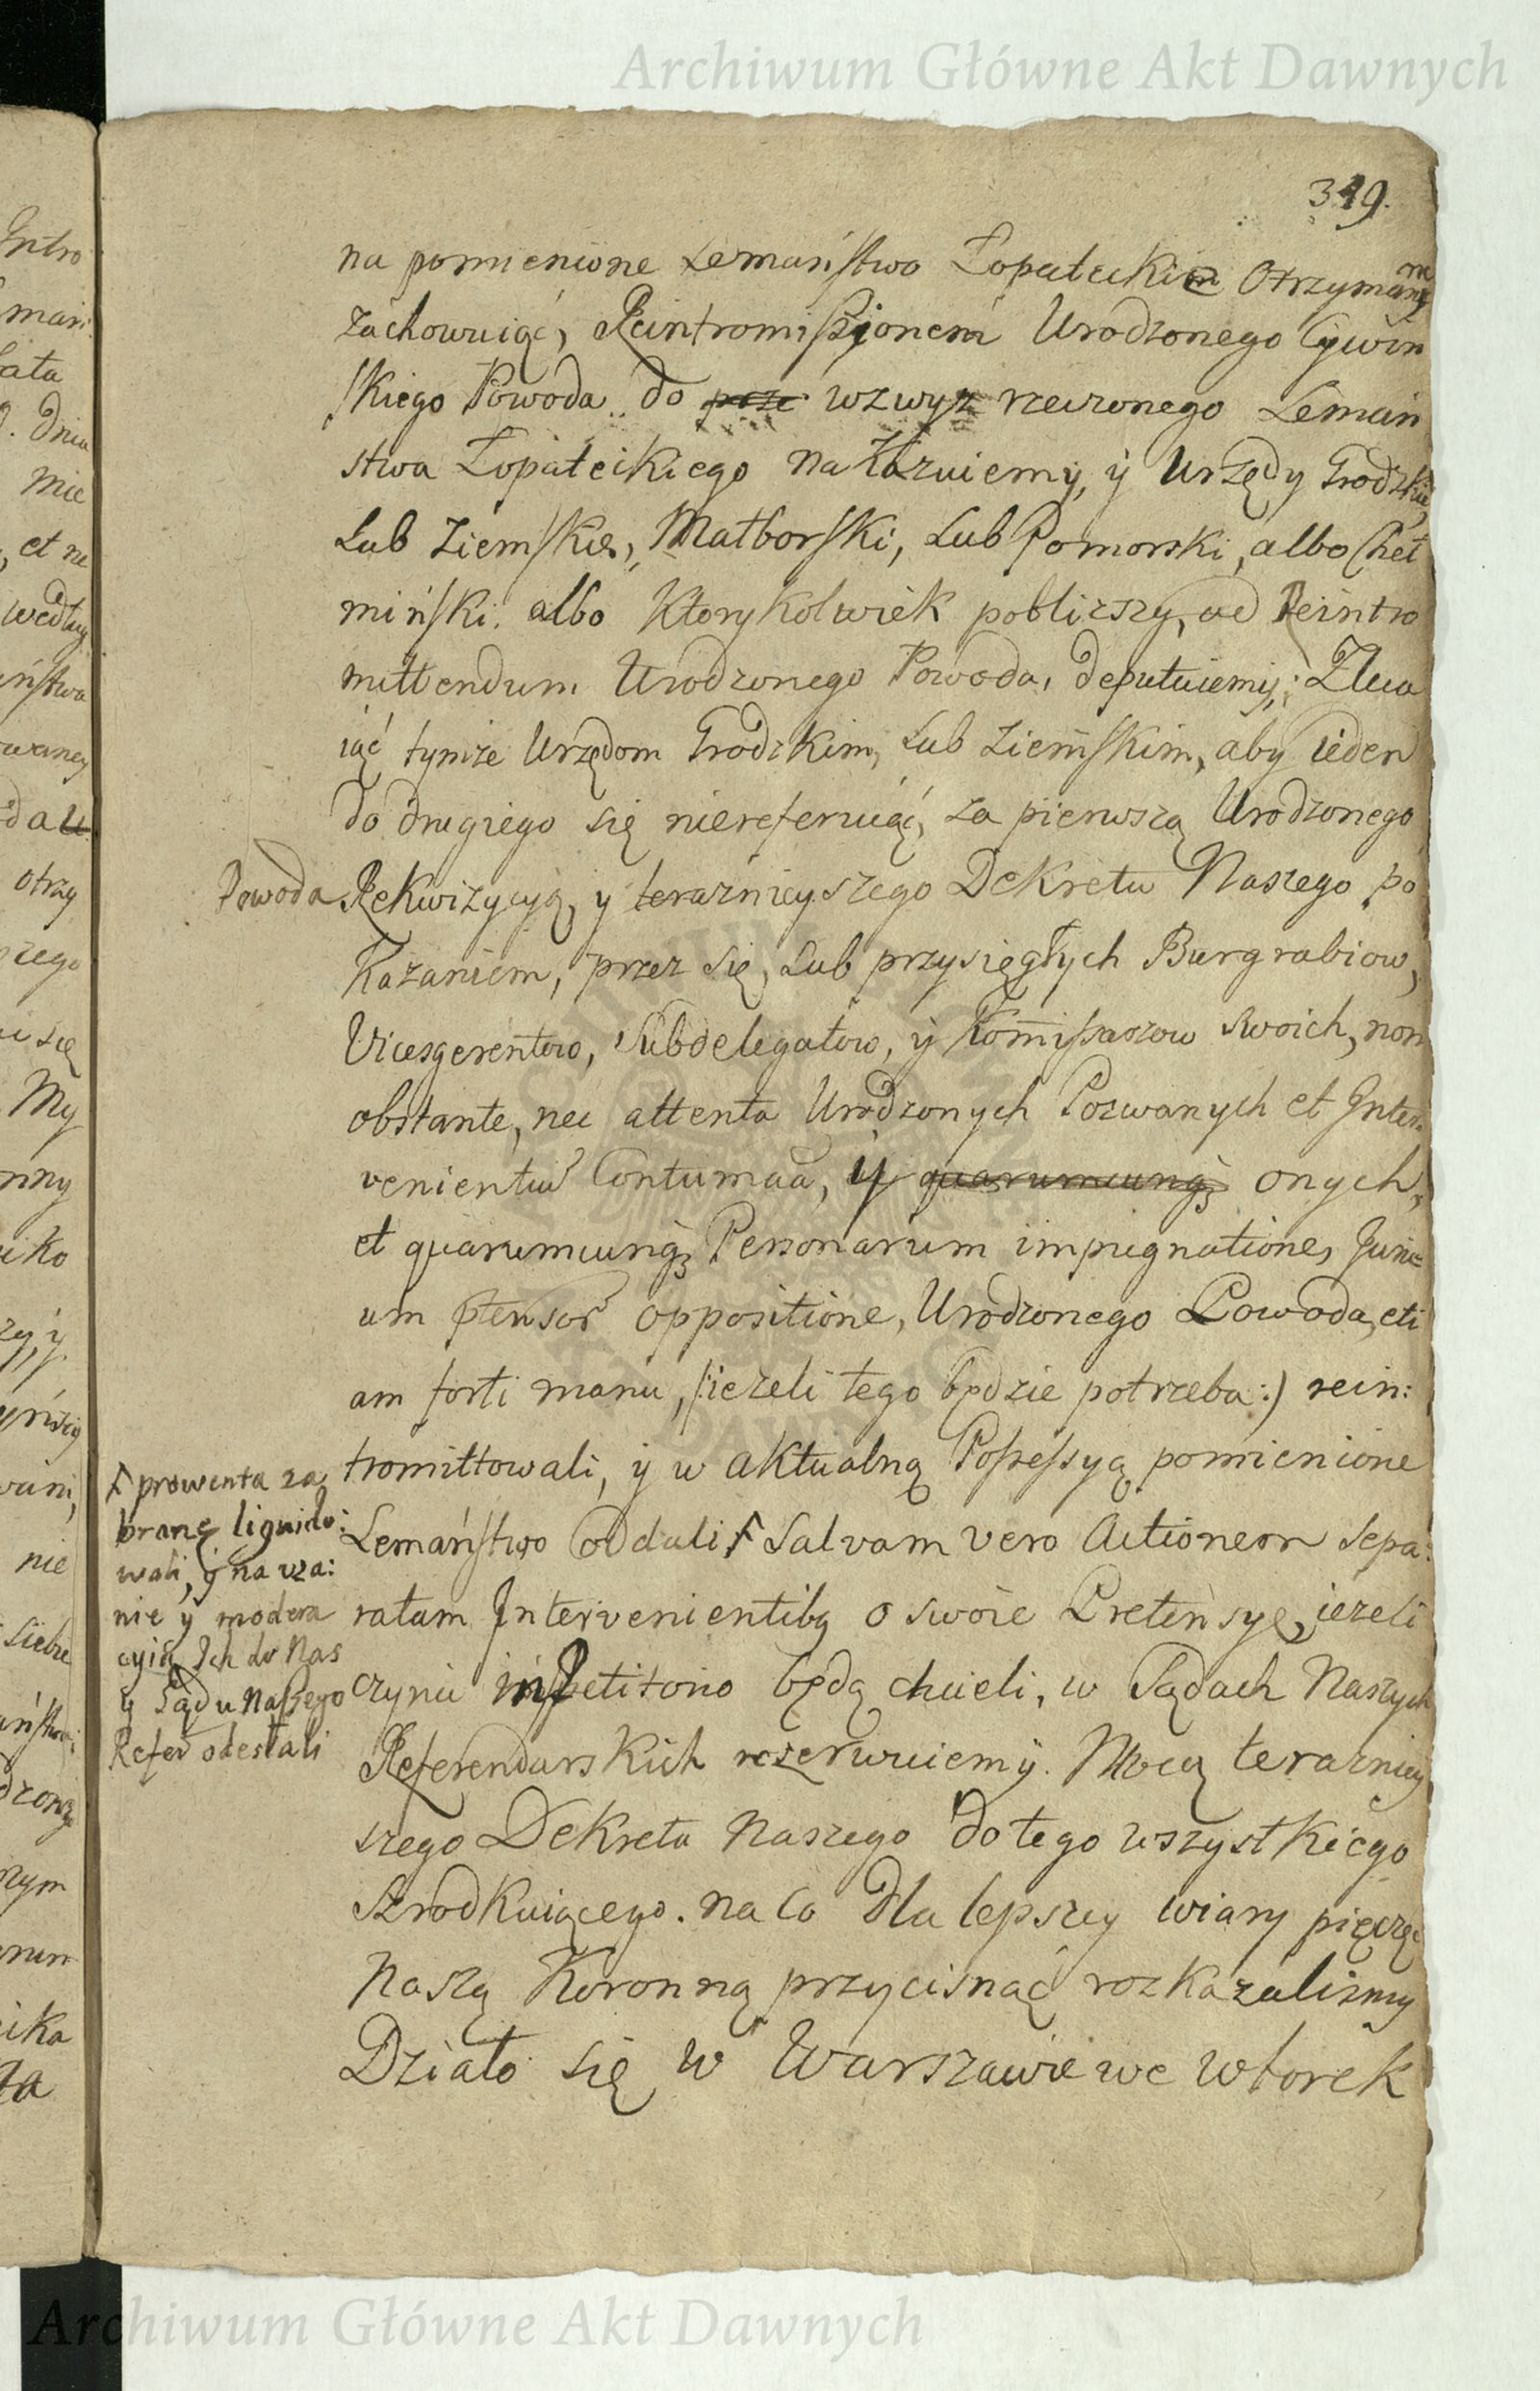 Archiwum Główne Akt Dawnych
349.
na pomienione Lemaństwo Łopateckie Otrzymane
zachowuiąc, Reintromissionem Urodzonego Cywin
skiego Powoda do wzwyz rzeczonego Leman
stwa Łopateckiego nakazuiemy, y Urzędy Grodzkie,
Lub Ziemskie, Malborski, Lub Pomorski, albo Cheł
miński. albo Ktorykolwiek poblizszy, ad Reintro
mittendum Urodzonego Powoda, deputuiemy; Zleca
iąc tymże Urzędom Grodzkim, Lub Ziemskim, aby ieden
do drugiego się niereferuiąc, za pierwszą Urodzonego
Powoda Rekwizycyią, y teraznieyszego Dekretu Naszego po
Kazaniem, przez się, Lub przysięgłych Burgrabiow,
Vicesgerentow, Subdelegatow, y Kommissarzow swoich, non
obstante, nec attenta Urodzonych Pozwanych et Inter
venientiū Contumaciā, y quarumcunqꝫ onych,
et quarumcunqꝫ Personarum impugnatione, Juri=
um ptensor oppositione, Urodzonego Powoda, eti
am forti manu, /:iezeli tego będzie potrzeba:) rein:
tromittowali, y w aktualną Possessyą pomienione
Lemaństwo oddali Salvam vero Actionem sepa:
ratam Intervenientibꝫ o swoie Pretensye, iezeli
czynić będą chcieli, w Sądach Naszych
Referendarskich rezerwuiemy. Mocą terazniey
szego Dekretu Naszego do tego wszystkiego
szrodkuiącego. na Co Dla lepszey wiary pięczęć
Naszą Koronną przycisnąć rozkazalismy
Działo się w Warszawie we Wtorek
prowenta za
brane liquido:
wali, y na uzna:
nie y modera
cyią Ich do Nas
y Sądu Naszego
Refer odesłali
Archiwum Główne Akt Dawnych